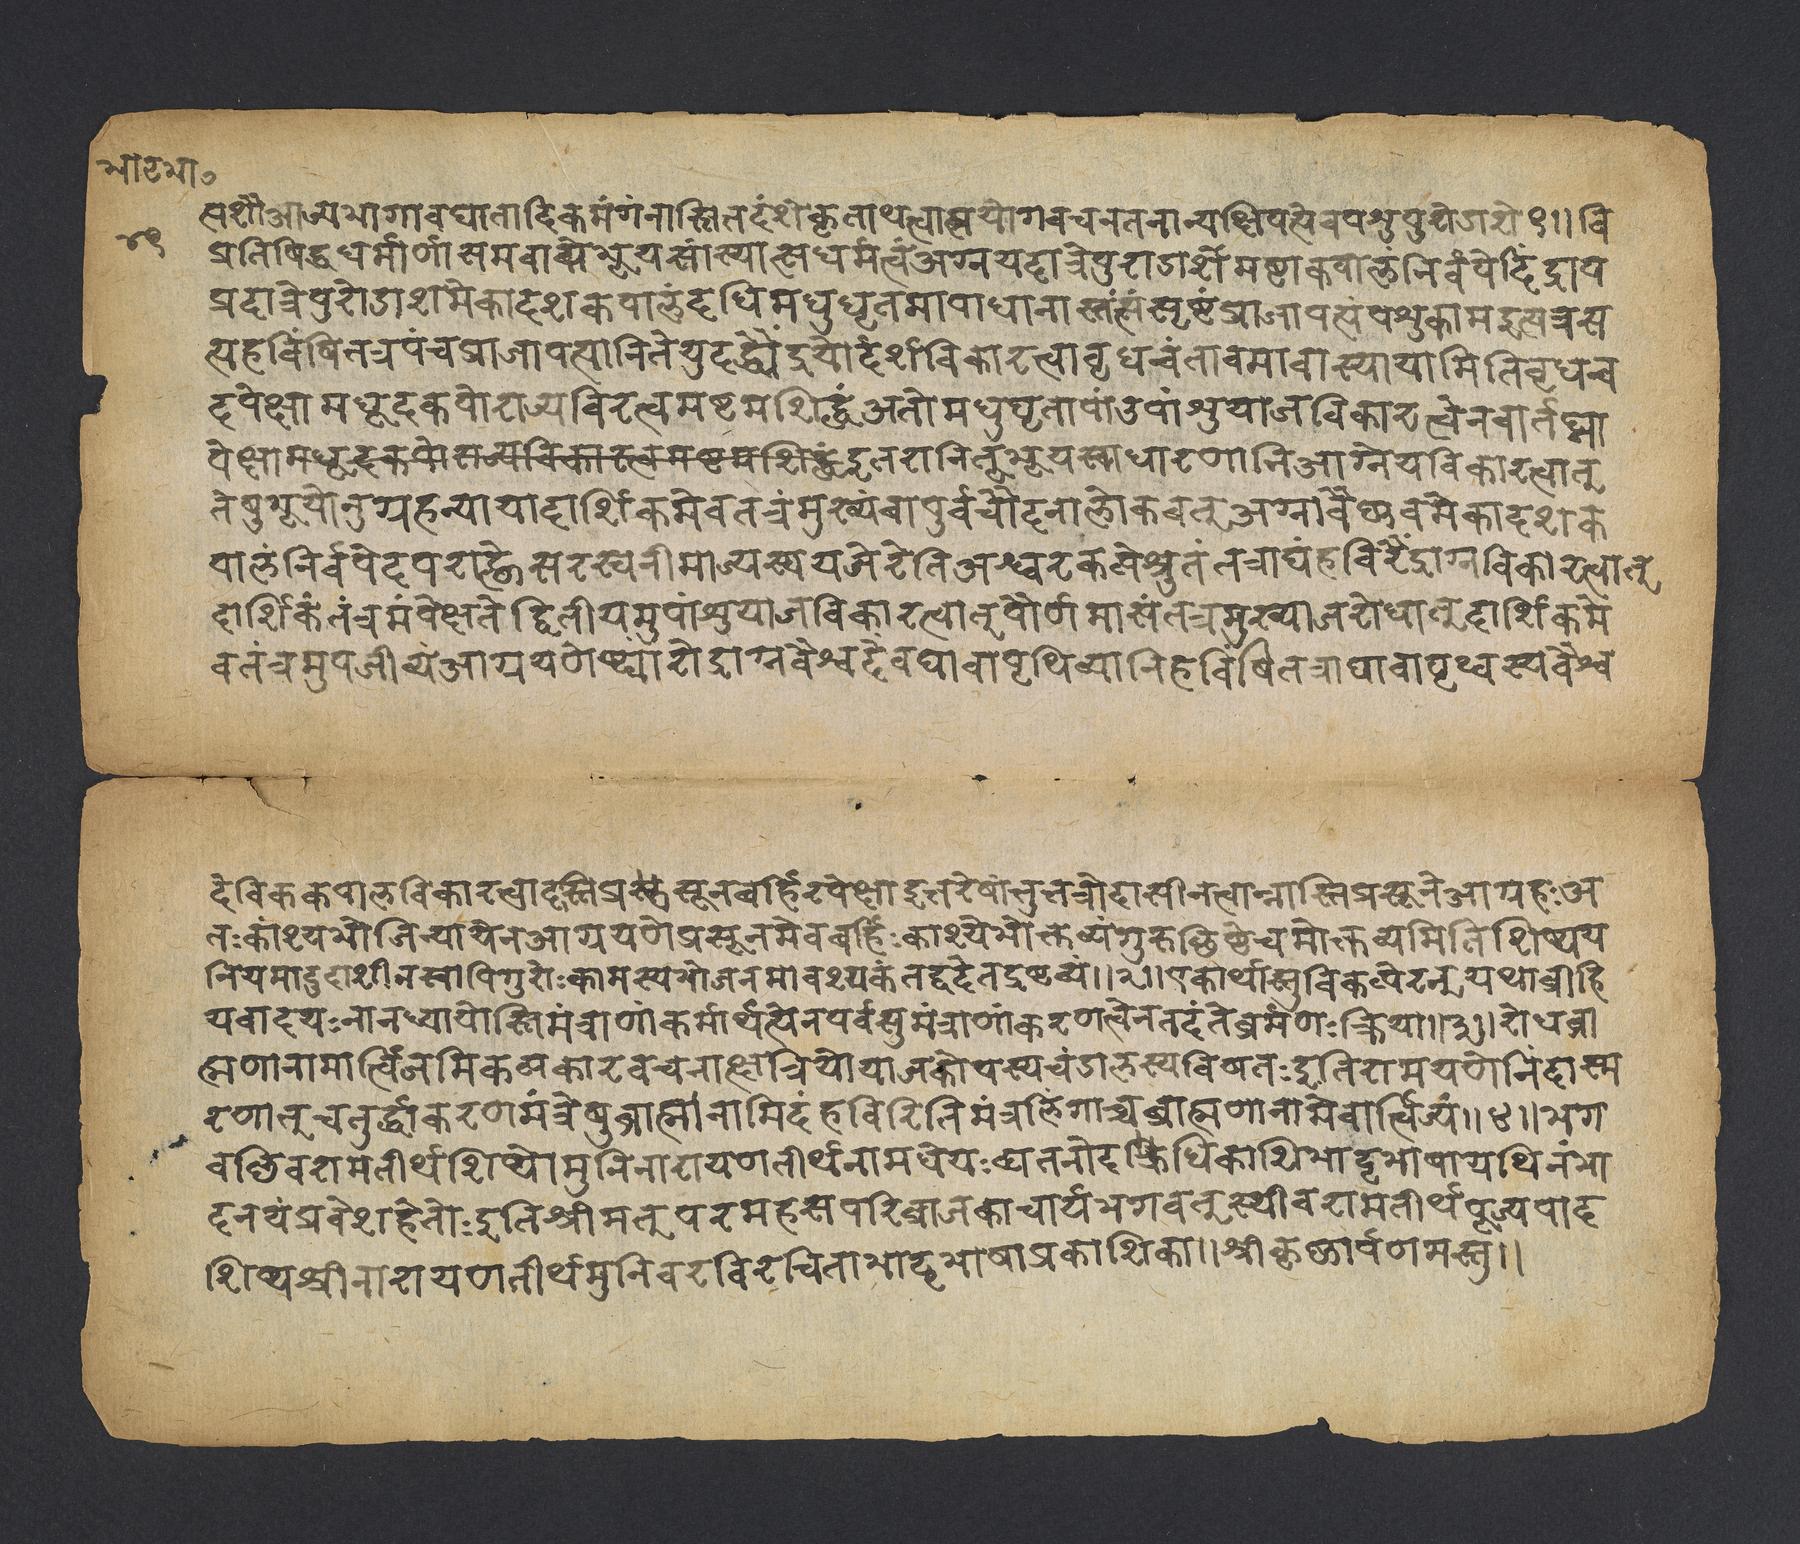 भाटभा॰
४९
त्सशौआज्यभागावघातादिकमंगंनास्तितदंशेकृतार्थत्वात्प्रयोगवचनेतनान्यक्षिपत्येवपशुपुरोडाशे१॥वि
प्रतिषिद्धधर्माणांसमवायेभूयसांस्यात्सधर्मत्वंअग्नयेदात्रेपुरोडाशेमष्टाकपालंनिर्वपेदिंद्राय
प्रदात्रेपुरोडाशमेकादशकपालंदधिमधुघृतमापोधानास्तंत्संसृष्टंप्राजापत्यंपशुकामइत्यत्रस
त्यहविंषितत्रपंचप्राजापत्यानितेषुदद्ध्योंद्रयोर्दर्शविकारत्वावृधन्वंतावमावास्यायामितिवृधन्व
दपेक्षामधूदकयोराज्यविरत्वमष्टमशिद्धंअतोमधुघृतापांउपांशुयाजविकारत्वेनवार्तघ्ना
पेक्षामधूदकयोराज्यविकारत्वमष्टमशिद्धंइतरानितूभूयस्त्वाधारणानिआग्नेयविकारत्वात्
तेषुभूयोनुग्रहन्यायाद्दार्शिकमेवतत्रंमुख्यंवापुर्वचोदनाल्लोकवत्अग्नावैष्णवमेकादशक
पालंनिर्वपेदपराह्णेसरस्वतीमाज्यस्ययजेरेतिअध्वरकल्पेश्रुतंतत्राद्यंहविरैंद्राग्नविकारत्वात्
दार्शिकंतंत्रमंपेक्षतेद्वितीयमुपांशुयाजविकारत्वात्पौर्णमासंतत्रमुख्याजरोधात्दार्शिकमे
वतंत्रमुपजीव्यंआग्रयणेष्ट्यारोद्राग्नवैश्वदेवद्यावापृथिव्यानिहविंषितत्राद्यावापृथ्व्यस्यवैश्व
देविककपालविकारत्वादस्तिप्रसूनबर्हिरपेक्षाइतरेषांतुतत्रोदासीनत्वान्नास्तिप्रसूनेआग्रहःअ
तःकांश्यभोजिन्यायेनआग्रयणेप्रसूनमेवबर्हिःकांश्येभोक्तव्यंगुरुछिष्टंचमोक्तव्यमितिशिष्यय
नियमाद्रुदाशीनस्वापिगुरोःकामस्यभोजनमावश्यकंतद्वदेतद्रष्टव्यं॥२॥एकार्थास्तुविकल्पेरन्यथाव्रीहि
यवादयःनानध्यायोस्तिमंत्राणांकर्मार्थत्वेनपर्वसुमंत्राणांकरणत्वेनतदंतेब्रमंणःक्रिया॥३॥रोधब्रा
ह्मणानामार्त्विजमिकल्पकारवचनात्क्षत्रियोयाजकोयस्यचंडालस्यविषतःइतिरामयणेनिंदास्म
रणात्चतुर्द्धाकरणमंत्रेषुब्राह्मांनामिदंहविरितिमंत्रलिंगाच्चब्राह्मणानामेवार्त्विज्यं॥४॥भग
वछिवरामतीर्थशिष्योमुनिनारायणतीर्थनामधेयःव्यतनोदक्रिधिकाशिभाट्टभाषायथिनंभा
ट्टनयंप्रवेशहेतोःइतिश्रीमत्परमहंसपरिव्राजकाचार्यभगवत्स्थीवरामतीर्थपूज्यपाद
शिष्यश्रीनारायणतीर्थमुनिवरविरचिताभाट्टभाषाप्रकाशिका॥श्रीकृष्णार्पणमस्तु॥